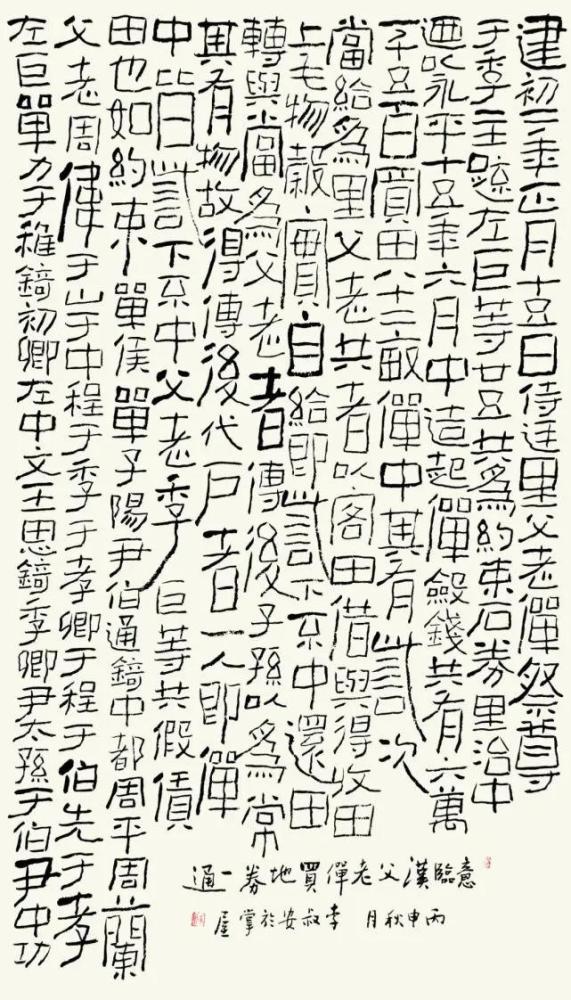 建初二年正月十五日侍廷里父老僤祭尊
于季主疏左巨等廿五共為約束石券里治中
迺以永平十五年六月中造起僤斂錢共有六萬
一千五百買田八十二畝僤中其有訾次
當給為里父老共者以客田借與得收田
上毛物穀實自給即訾下不中還田
轉與當為父老者傳後子孫以為常
其有物故得傳後代戶者一人即僤
中皆訾下不中父老季巨等共假賃
田也如約束單侯單子陽尹伯通錡中都周平周蘭
父老周偉于山于中程于季于孝卿于程于伯先于孝
左巨單力于稚錡初卿左中文王思錡季卿尹太孫于伯尹中功
意臨漢父老僤買地券一通
丙申秋月 李叔安於掌屋